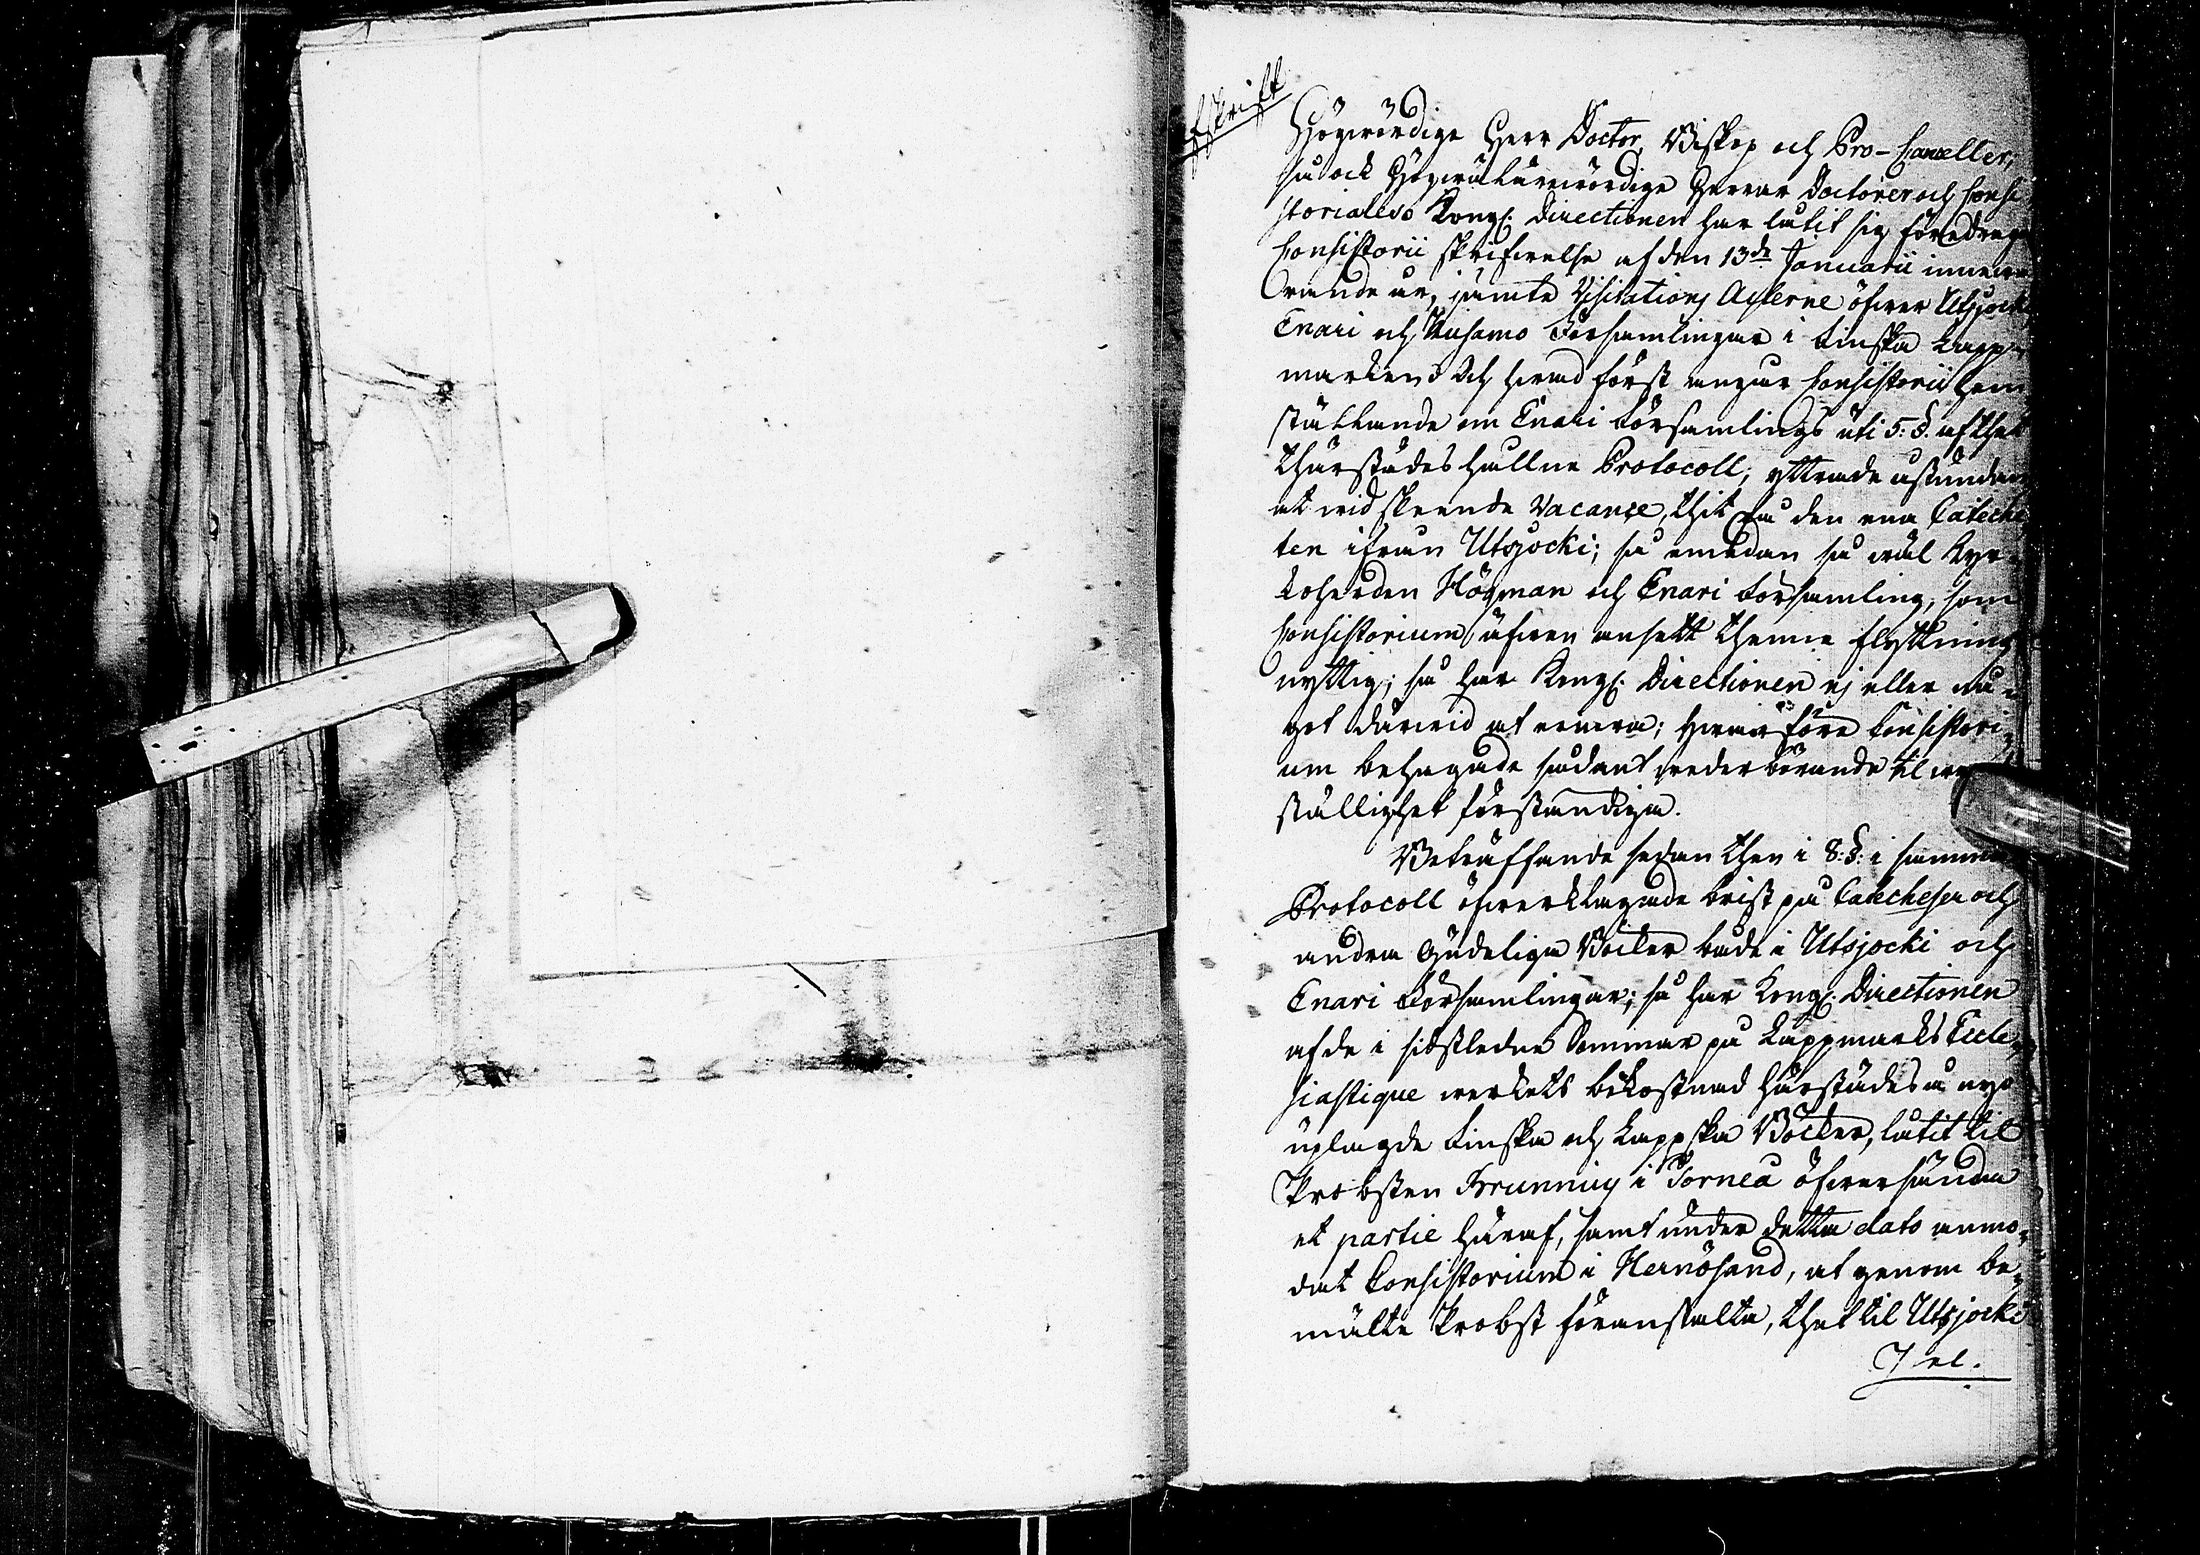 Afskrift
Högwördige Herr Doctor, Biskop och Pro-Canceller,
så ock Högwälärewördige Herrar Doctorer och Consi
storiales Kongl. Directionen har låtit sig föredraga
Consistorii skrifwelse af den 13de Januarii innewa
rande år, jämte Visitations Acterne öfwer Utsjocki
Enari och Kusamo Församlingar i Finska Lapp-
marken Och hwad först angår Consistorii hem
ställande om Enari Församlings uti 5: §. af thet
thärstädes hållne Protocoll, yttrade åstundan
at wid skeende Vacance, thit få den ena Cateche
ten ifrån Utsjocki; så emedan så wäl Kyr-
koherden Högman och Enari Församling, som
Consistorium, äfwen ansett thenne flyttning
nyttig; så har Kongl. Directionen ej eller nå-
got därwid at ärnera; hwarföre Consistori-
um behagade sådant wederbörande til werk
ställighet förständiga.
Beträffande sedan then i 8: §: i samma
Protocoll öfwerklagade brist på Catecheser och
andra Gudeliga Böcker både i Utsjocki och
Enari Församlingar; så har Kongl. Directionen
af de i sidstledne Sommar på Lappmarks Eccle-
siastique werkets bekostnad härstädes å nyo
uplagde Finska och Lappska Böcker, låtit til
Probsten Brunnius i Torneå öfwersända
et partie häraf, samt under detta dato anmo-
dat Consistorium i Hernösand, at genom be-
mälte Probst föranstalta, thet til Utsjocki